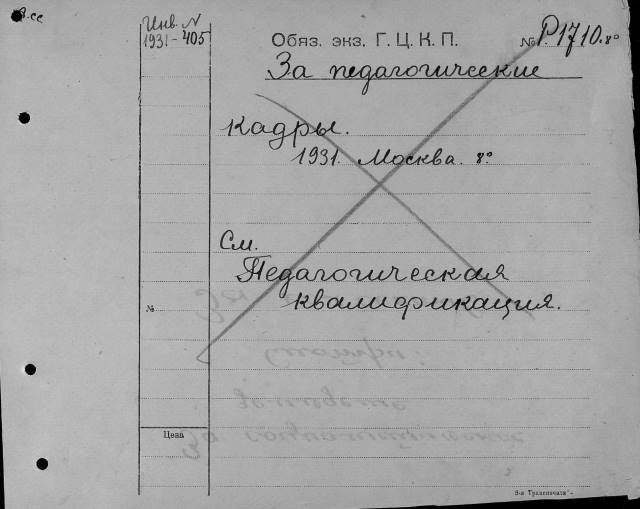 Инв. N
1931-405
Обяз. экз. Г. Ц. К. П.
№ Р1710.8°
За педагогические
кадры.
1931. Москва. 8°
См.
Педагогическая
квалификация.
№
Цена